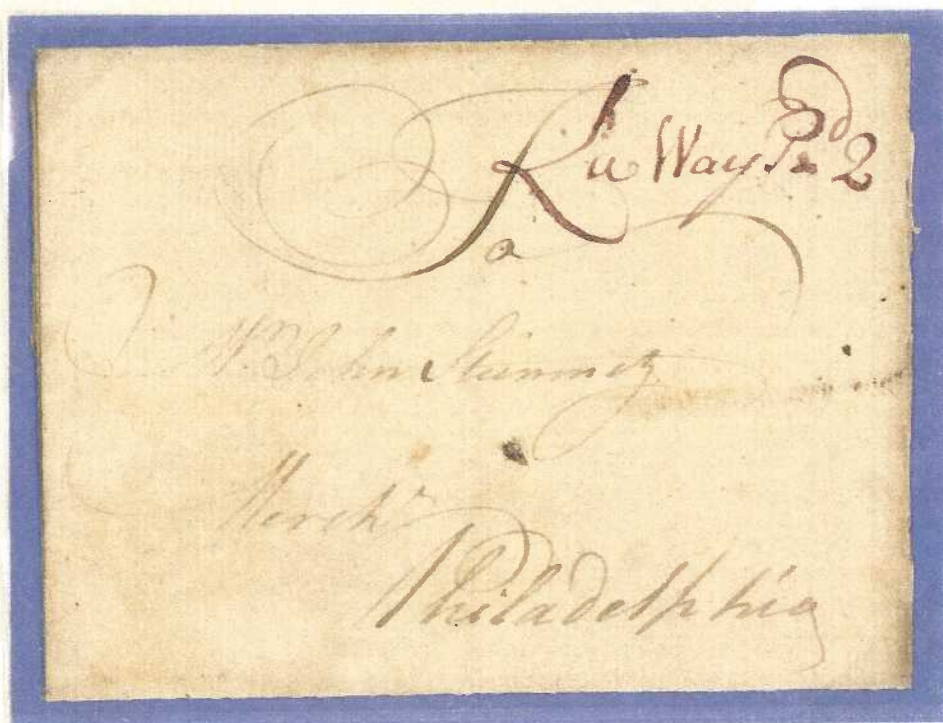 Way 2
Mr. John Steinmetz
Mercht
Philadelphia